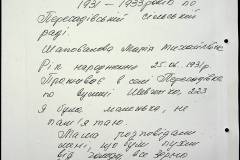 1931 - 1933 років по
Пересадівській сільській
раді.
Шаповалова Марія Михайлівна
Рік народження 25.06.1931р
Проживає в селі Пересадівка
по вулиці Шевченка, 223
Я була маленька, не
пам'ятаю.
Мама розповідали
мені, що були пухлі
від голоду, все